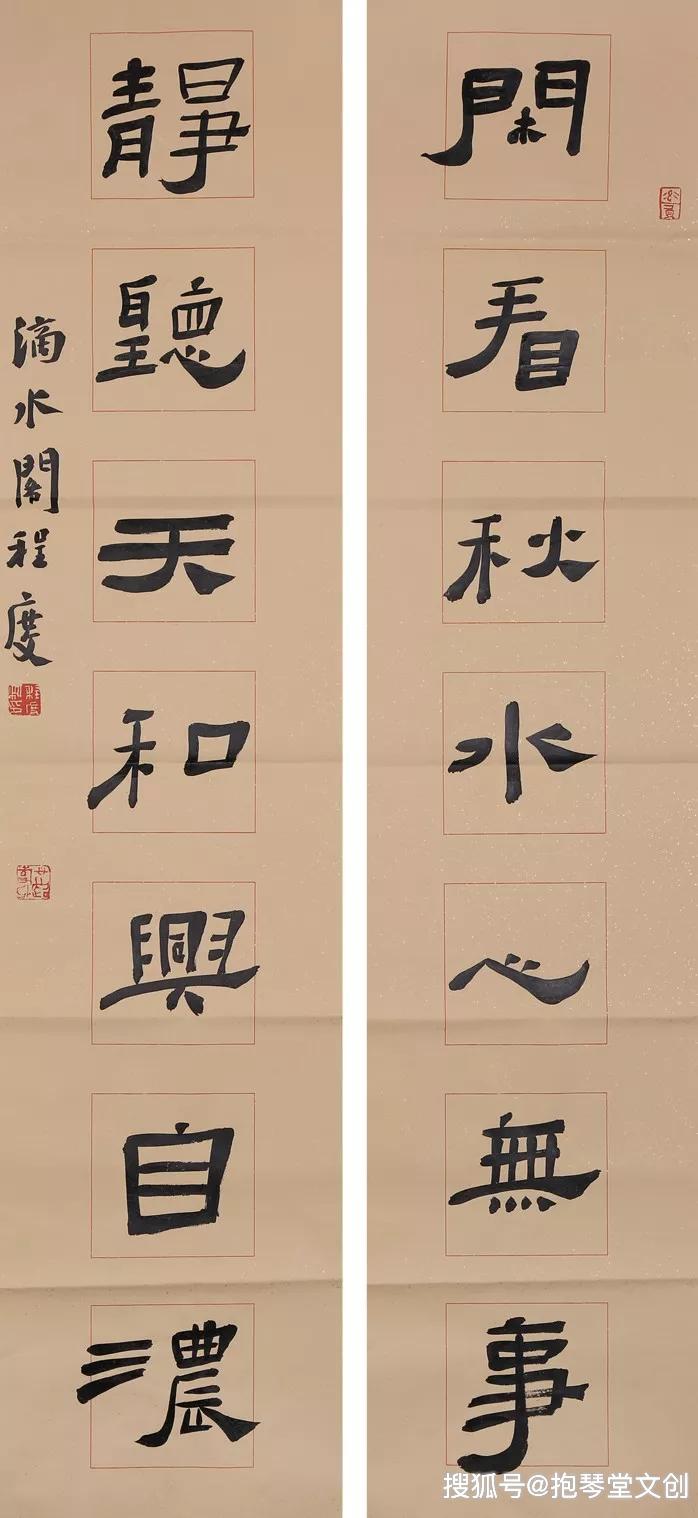 閑看秋水心無事
靜聽天和興自濃
滴水閣程度
搜狐号@抱琴堂文创